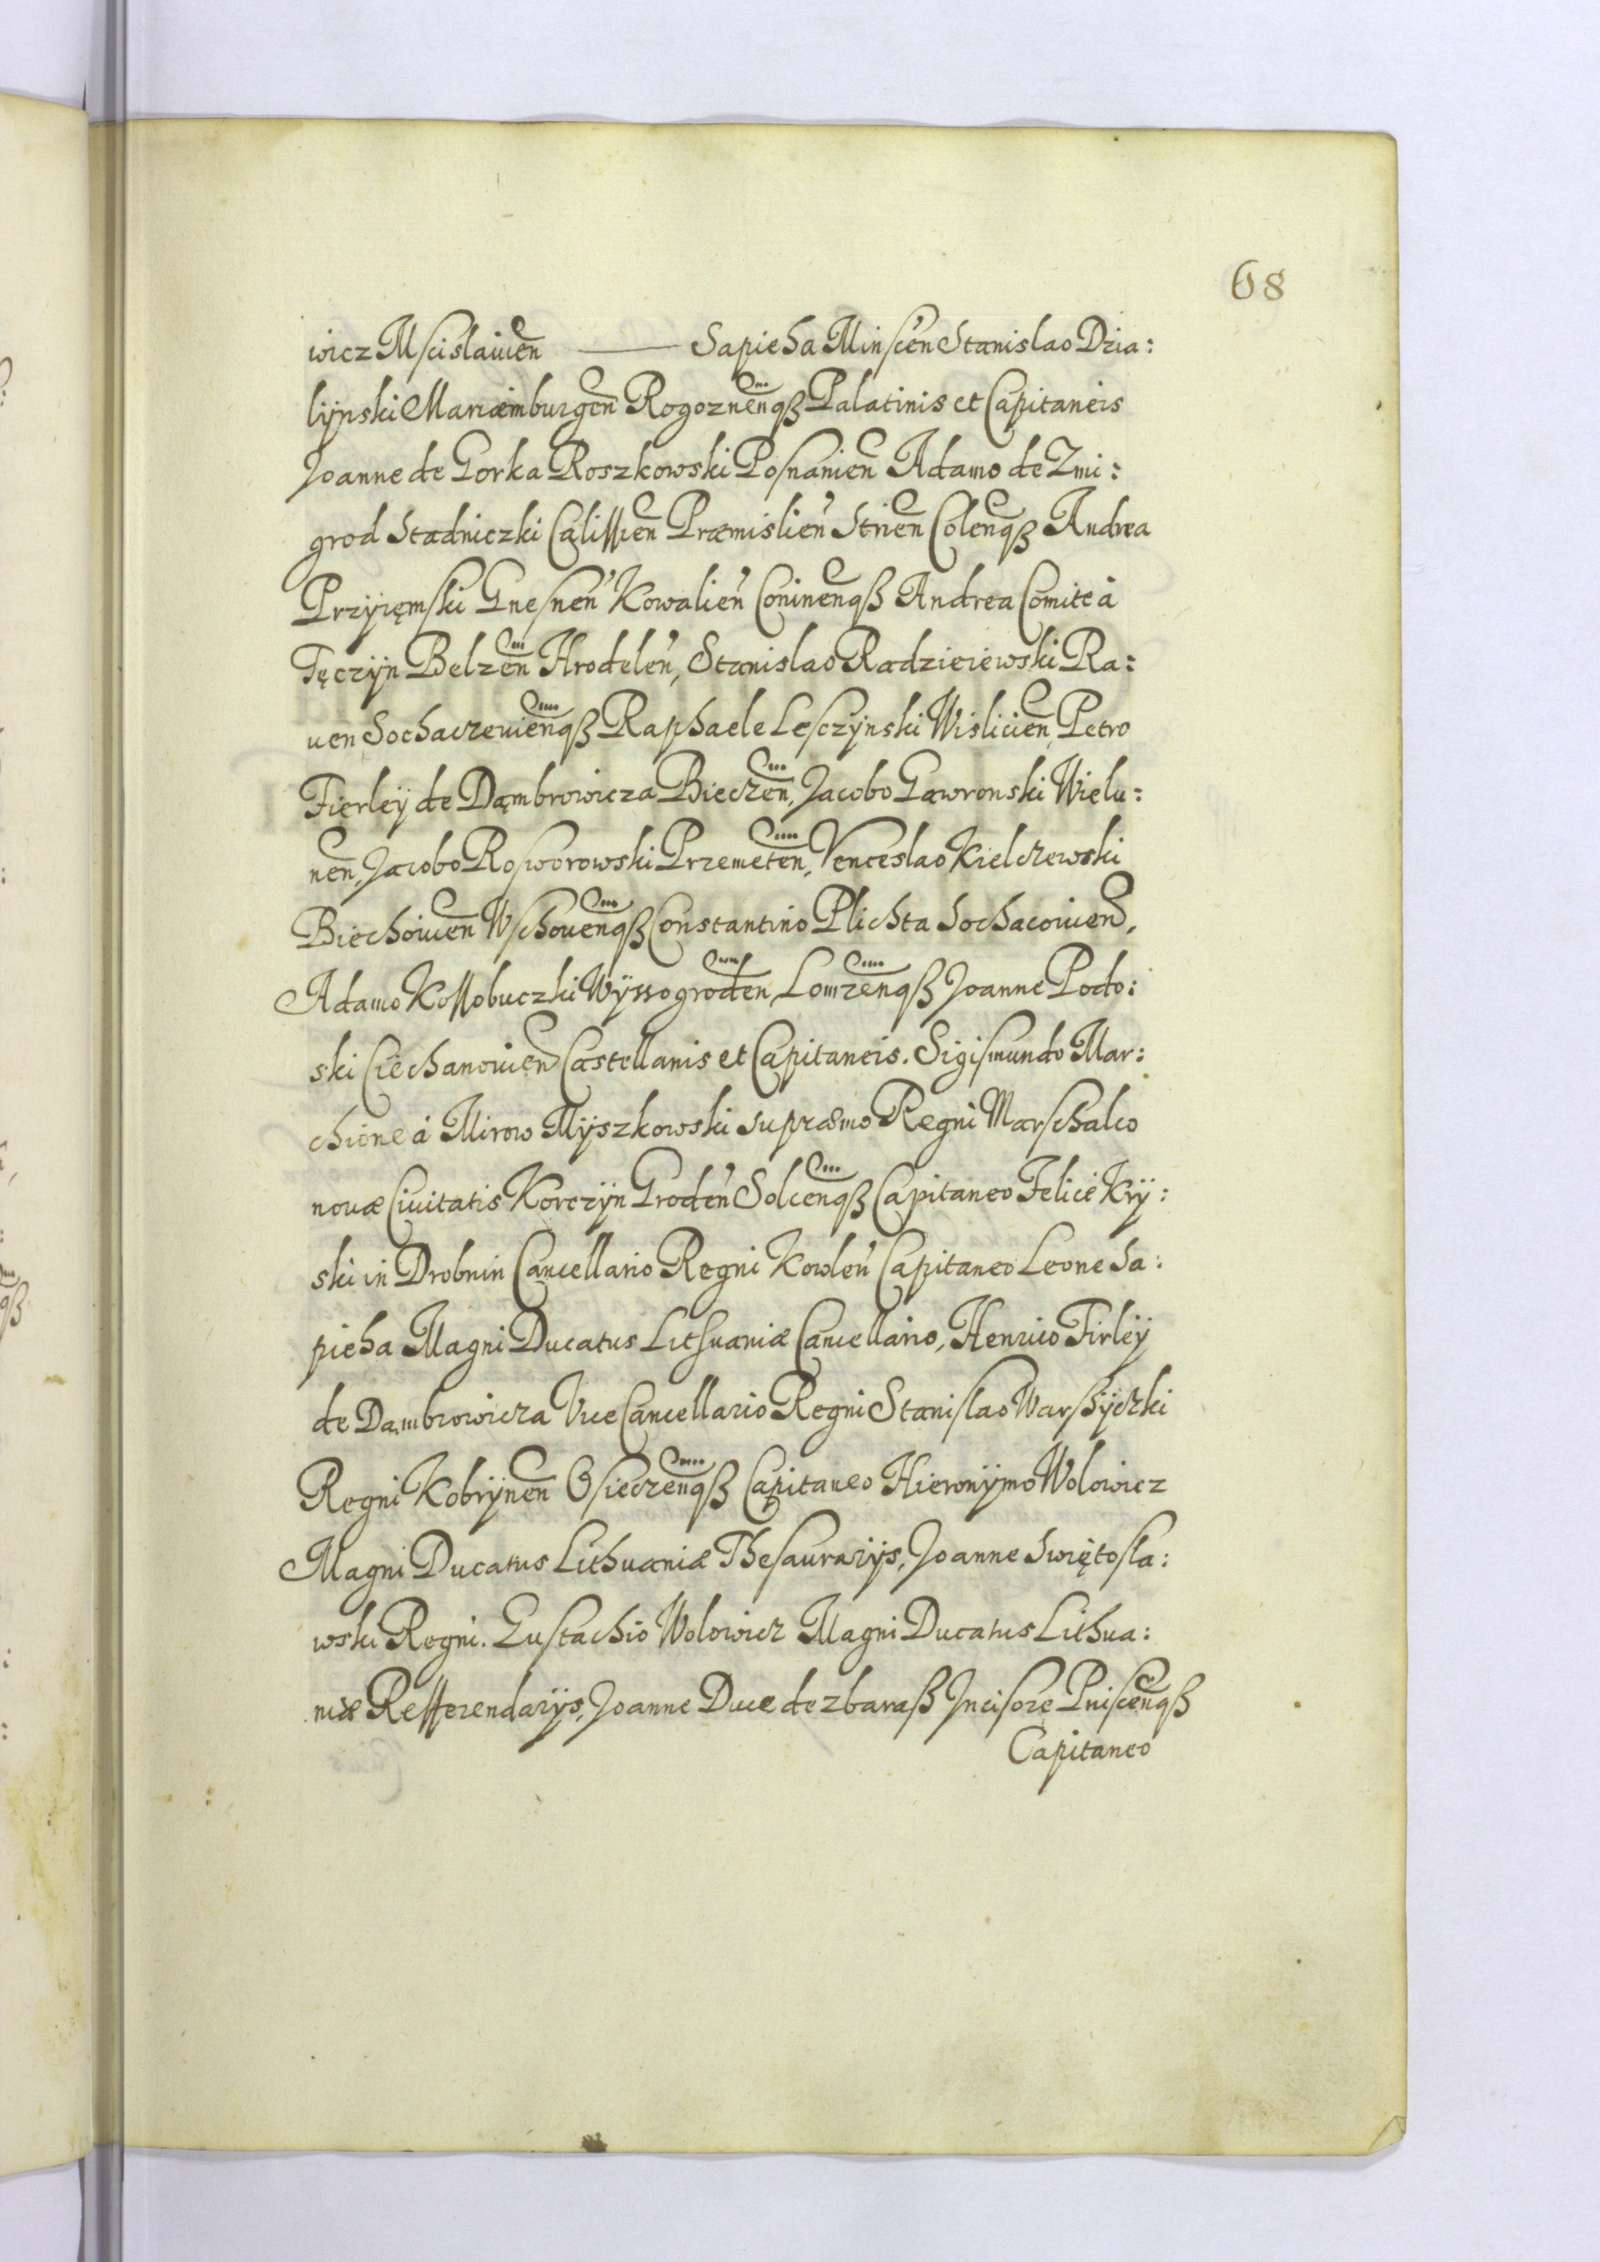 68
wicz Mscislauien̄ ——— Sapieha Minscen̄ Stanislao Dzia:
lÿnski Mariæmburgen̄ Rogoznen̄qß Palatinis et Capitaneis
Joanne de Gorka Roszkowski Posnanien̄ Adamo de Zmi:
grod Stadniczki Calissien̄ Præmislien̄ Strien̄ Colen̄qß Andrea
Przÿięmski Gnesnen̄ Kowalien̄ Coninen̄qß Andrea Comite à
Tęczÿn Belzen̄ Hrodelen̄, Stanislao Radzieiewski Ra:
uen Sochaczeuien̄qß Raphaele Lesczÿnski Wislicien̄, Petro
Fierleÿ de Dąmbrowicza Bieczen̄, Jacobo Gawronski Wielu:
nen̄, Jacobo Rosworowski Przemeten̄, Venceslao Kielczewski
Biechowen̄ Wschouen̄qß Constantino Plichta Sochacouien̄,
Adamo Kossobuczki Wÿssogroden̄, Lomzen̄qß Joanne Podo:
ski Ciechanouien̄ Castellanis et Capitaneis. Sigismundo Mar:
chione à Mirow Mÿszkowski supræmo Regni Marschalco
nouæ Ciuitatis Korczÿn Groden̄ Solcen̄qß Capitaneo Felice Krÿ:
ski in Drobnin Cancellario Regni Kowlen̄ Capitaneo Leone Sa:
pieha Magni Ducatus Lithuaniæ Cancellario, Henrico Firleÿ
de Dąmbrowicza Vice Cancellario Regni Stanislao Warßÿczki
Regni Kobrÿnen̄ Osieczen̄qß Capitaneo Hieronÿmo Wolowicz
Magni Ducatus Lithuaniæ Thesaurarÿs, Joanne Swiętosla:
wski Regni. Eustachio Wolowicz Magni Ducatus Lithua:
niæ Refferendarÿs, Joanne Duce de zbaraß Incisore Pniscen̄qß
Capitaneo